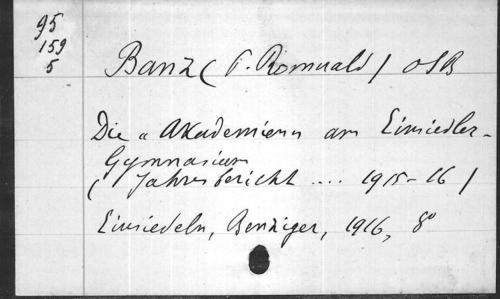 95
159
5
Banz (P. Romuald) OSB
Die „Akademien am Einsiedler-
Gymnasium
(Jahresbericht .... 1915-16)
Einsiedeln, Benziger, 1916, 8°